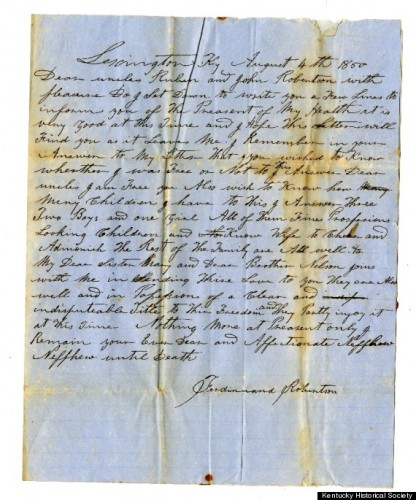 Lexington Ky August 4th 1850
Dear uncles Ruben and John Robertson with
pleasure Do I Set Down to write you a Few Lines to
inform you of the Preasent of My Health it is
very Good at this Time and I Hope this Letter will
Find you as it Leaves Me I Remember in your
Answer to My Letter that you wished to Know
wheather I was Free or Not to this I Answer Dear
uncles I am Free you Also wish to Know how
Meny Children I have to this I Answer Three
Two Boys and one Girl All of Them Fine
Looking Children and Know Wife to and
Admonich The Rest of the Family are All well
My Dear Sister Mary and Dear Brother Nelson joins
with Me in Sending There Love to you They are Also
well and in Possesion of a Clear and
indisputeable Title to their Freedom and They Partly injoy it
at this Time Nothing More at Preasent only I
Remain your Ever Dear and Affectionate Neffhew
Neffhew until Death
Ferdinand Robertson
Kentucky Historical Society